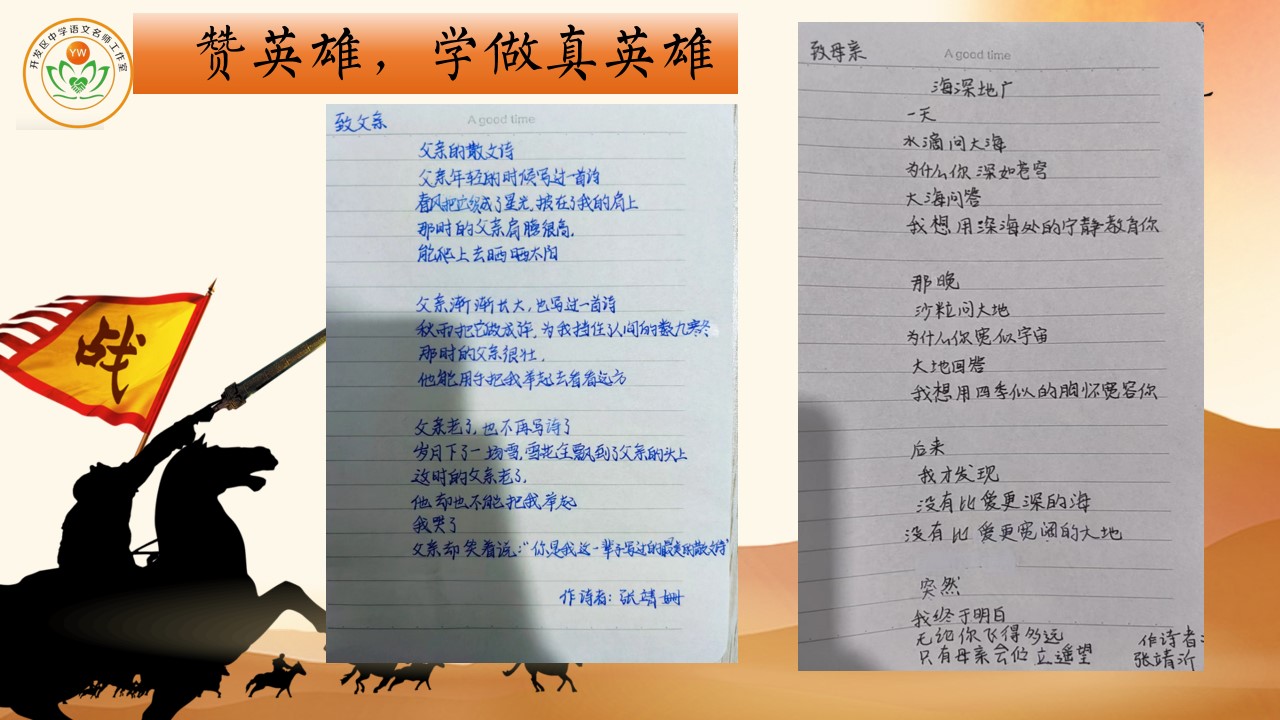 开发区中学语文名师工作室
YW
赞英雄，学做真英雄
战
致父亲
A good time
父亲的散文诗
父亲年轻的时候写过一首诗
春风把它织成了星光，披在了我的肩上
那时的父亲肩膀很高，
能爬上去晒晒太阳
父亲渐渐长大，也写过一首诗
秋雨把它做成伞，为我挡住人间的数九寒冬
那时的父亲很壮，
他能用手把我举起去看看远方
父亲老了，也不再写诗了
岁月下了一场雪，雪花全飘到了父亲的头上
这时的父亲老了，
他却也不能把我举起
我哭了
父亲却笑着说：“你是我这一辈子写过的最美的散文诗”
作诗者：张靖姗
致母亲
A good time
海深地广
一天
水滴问大海
为什么你深如苍穹
大海问答
我想用深海处的宁静教育你
那晚
沙粒问大地
为什么你宽似宇宙
大地回答
我想用四季似的胸怀宽容你
后来
我才发现
没有比爱更深的海
没有比爱更宽阔的大地
突然
我终于明白
无论你飞得多远
只有母亲会伫立遥望
作诗者：
张靖沂